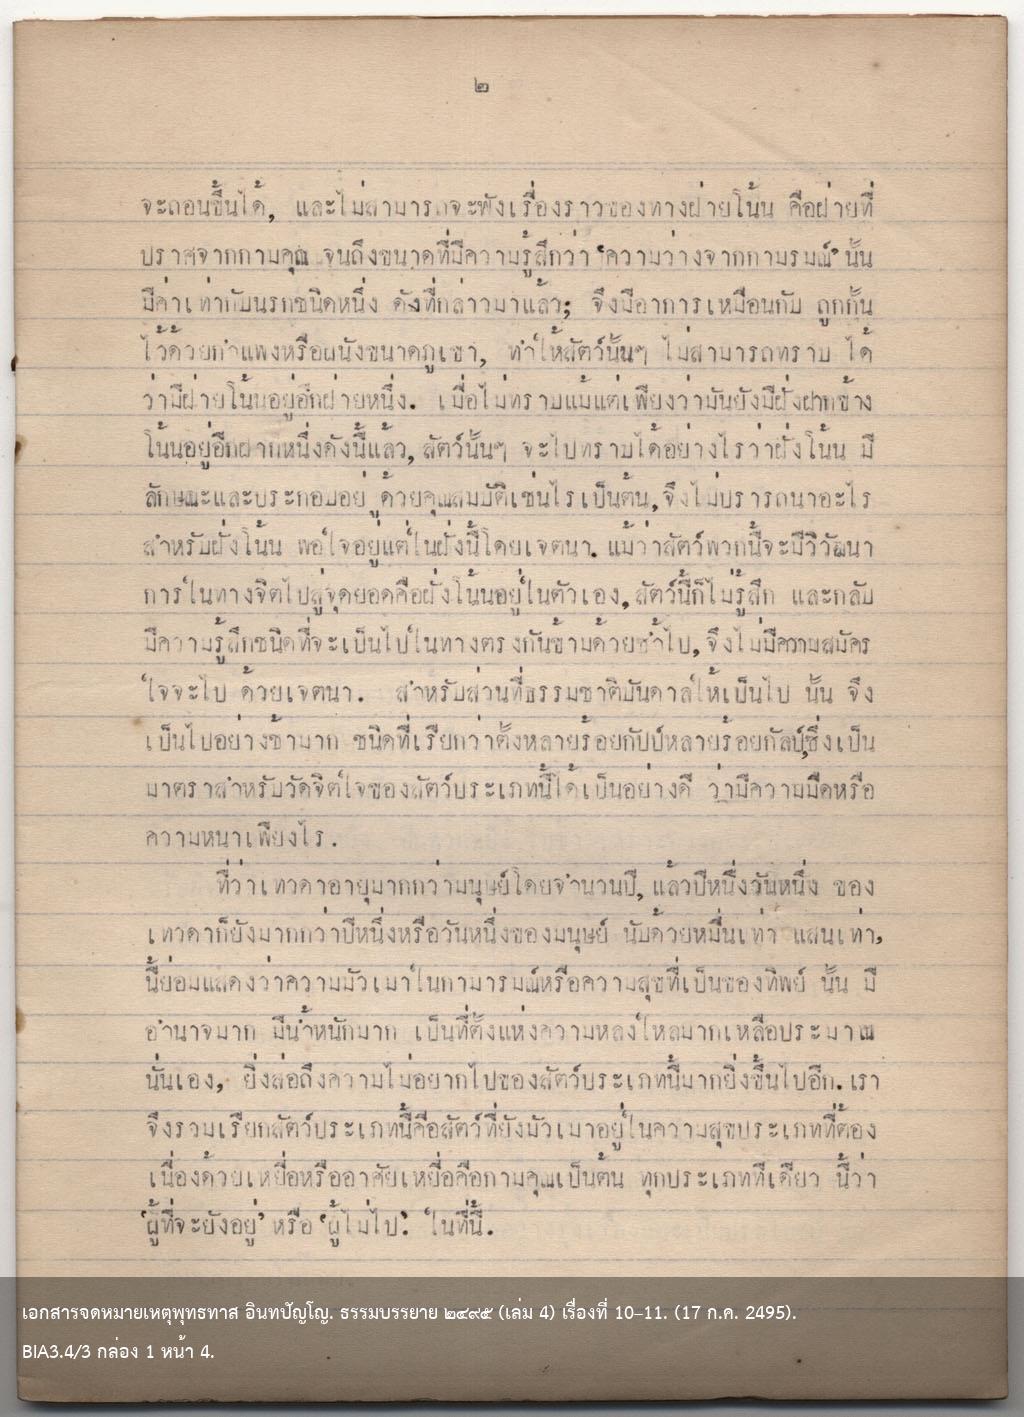 ๒
จะถอนขึ้นได้, และไม่สามารถจะฟังเรื่องราวของทางฝ่ายโน้น คือฝ่ายที่
ปราศจากกามคุณ จนถึงขนาดที่มีความรู้สึกว่า ‘ความว่างจากกามรมณ์’ นั้น
มีค่าเท่ากับนรกชนิดหนึ่ง ดังที่กล่าวมาแล้ว; จึงมีอาการเหมือนกับ ถูกกั้น
ไว้ด้วยกำแพงหรือผนังขนาดภูเขา, ทำให้สัตว์นั้นๆ ไม่สามารถทราบ ได้
ว่ามีฝ่ายโน้นอยู่อีกฝ่ายหนึ่ง. เมื่อไม่ทราบแม้แต่เพียงว่ามันยังมีฝั่งฝากข้าง
โน้นอยู่อีกฝากหนึ่งดังนี้แล้ว, สัตว์นั้นๆ จะไปทราบได้อย่างไรว่าฝั่งโน้น มี
ลักษณะและประกอบอยู่ ด้วยคุณสมบัติเช่นไรเป็นต้น, จึงไม่ปรารถนาอะไร
สำหรับฝั่งโน้น พอใจอยู่แต่ในฝั่งนี้โดยเจตนา. แม้ว่าสัตว์พวกนี้จะมีวิวัฒนา
การในทางจิตไปสู่จุดยอดคือฝั่งโน้นอยู่ในตัวเอง, สัตว์นี้ก็ไม่รู้สึก และกลับ
มีความรู้สึกชนิดที่จะเป็นไปในทางตรงกันข้ามด้วยซ้ำไป, จึงไม่มีความสมัคร
ใจจะไป ด้วยเจตนา. สำหรับส่วนที่ธรรมชาติบันดาลให้เป็นไป นั้น จึง
เป็นไปอย่างช้ามาก ชนิดที่เรียกว่าตั้งหลายร้อยกัปป์หลายร้อยกัลป์,ซึ่งเป็น
มาตราสำหรับวัดจิตใจของสัตว์ประเภทนี้ได้เป็นอย่างดี ว่ามีความมืดหรือ
ความหนาเพียงไร.
ที่ว่าเทวดาอายุมากกว่ามนุษย์โดยจำนวนปี, แล้วปีหนึ่งวันหนึ่ง ของ
เทวดาก็ยังมากกว่าปีหนึ่งหรือวันหนึ่งของมนุษย์ นับด้วยหมื่นเท่า แสนเท่า,
นี้ย่อมแสดงว่าความมัวเมาในกามารมณ์หรือความสุขที่เป็นของทิพย์ นั้น มี
อำนาจมาก มีน้ำหนักมาก เป็นที่ตั้งแห่งความหลงใหลมากเหลือประมาณ
นั่นเอง, ยิ่งส่อถึงความไม่อยากไปของสัตว์ประเภทนี้มากยิ่งขึ้นไปอีก. เรา
จึงรวมเรียกสัตว์ประเภทนี้คือสัตว์ที่ยังมัวเมาอยู่ในความสุขประเภทที่ต้อง
เนื่องด้วยเหยื่อหรืออาศัยเหยื่อคือกามคุณเป็นต้น ทุกประเภททีเดียว นี้ว่า
‘ผู้ที่จะยังอยู่’ หรือ ‘ผู้ไม่ไป’. ในที่นี้.
เอกสารจดหมายเหตุพุทธทาส อินทปัญโญ. ธรรมบรรยาย ๒๔๙๕ (เล่ม 4) เรื่องที่ 10–11. (17 ก.ค. 2495).
BIA3.4/3 กล่อง 1 หน้า 4.